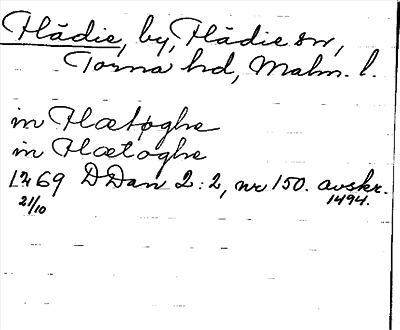 Flädie, by, Flädie sn,
Torna hd, Malm. l.
in Flætøghe
in Flætoghe
1269 DDan 2:2, nr 150. avskr.
21/10 1494.